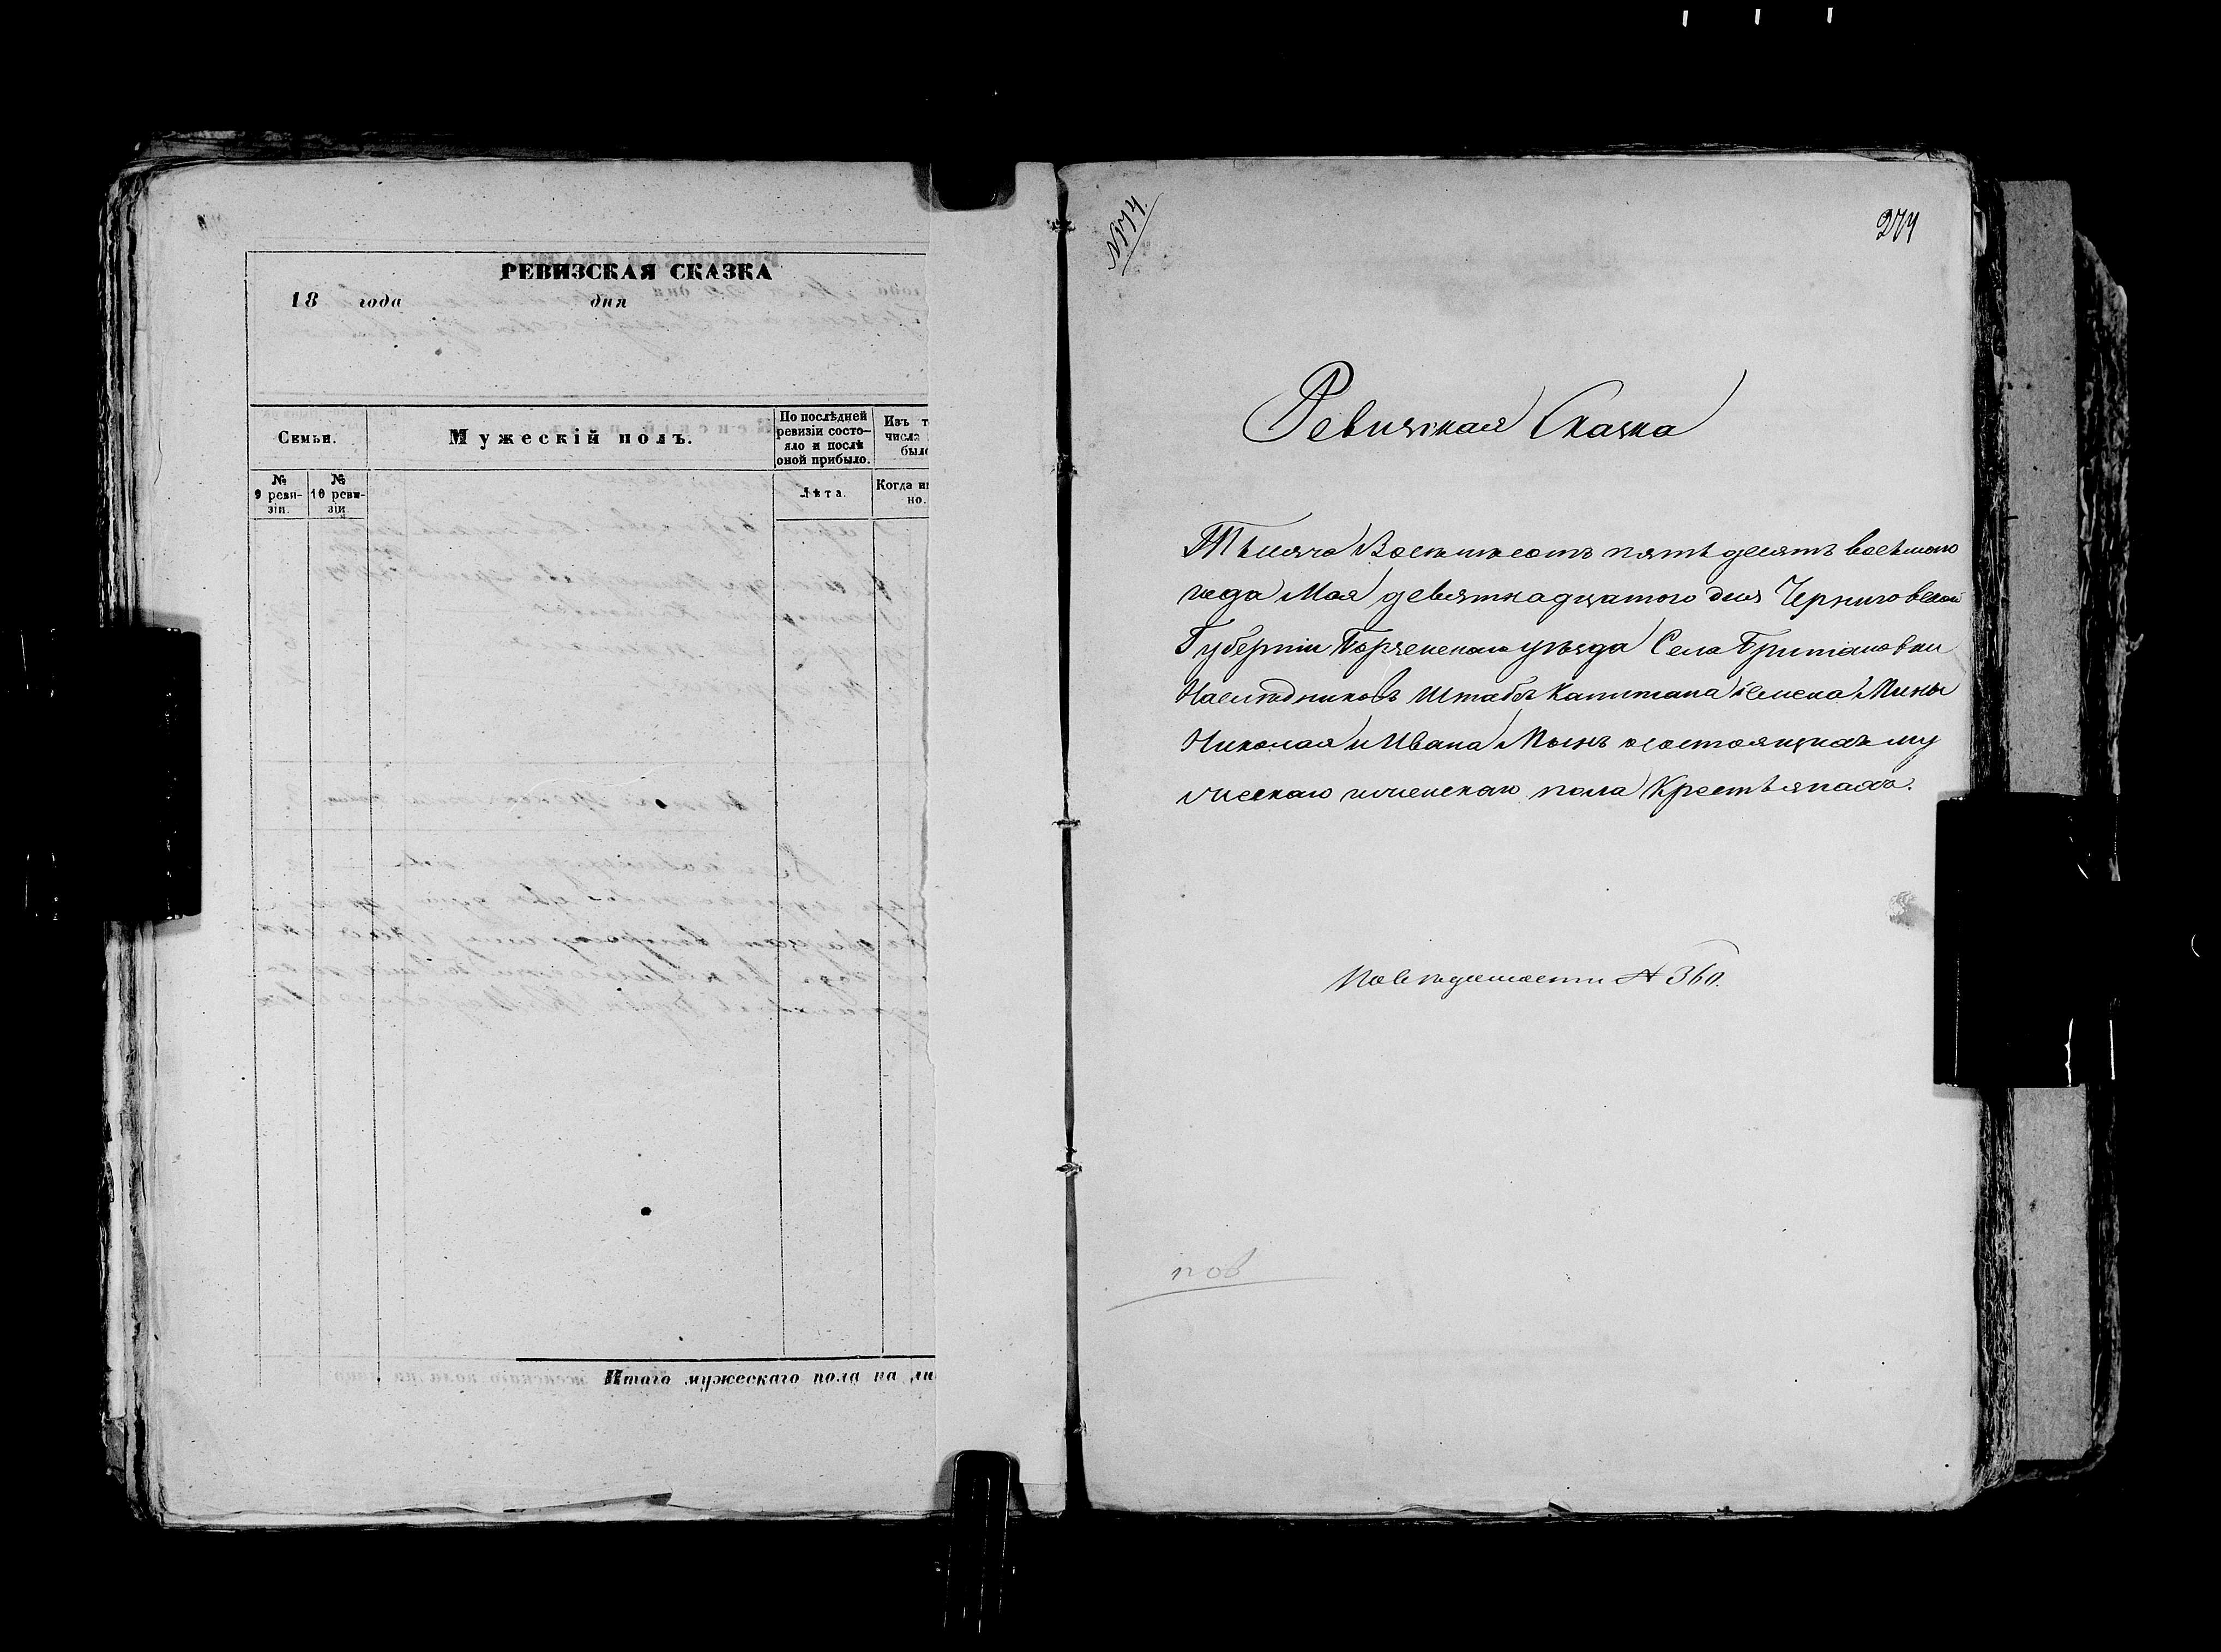 РЕВИЗСКАЯ СКАЗКА
18 года дня
Семьи.
Мужескій полъ.
По послѣдней
ревизіи состо-
яло и послѣ
оной прибыло.
Изъ т
числа
было
№
9 реви-
зіи.
№
10 реви-
зіи
Лѣта.
Когда и
но.
Итого мужескаго пола на ли
№74.
274
Ревизская Сказка
Тысяча Восемьсотъ пятьдесятъ восьмого
года Мая девятнадцатого дня Черниговской
Губерніи Борзенскаго уѣзда Села Британовки
Наслѣдниковъ Штабсъ Капитана
Николая и Ивана о состоящихъ му
жескаго и женскаго пола Крестьянахъ.
По вѣдомости № 360.